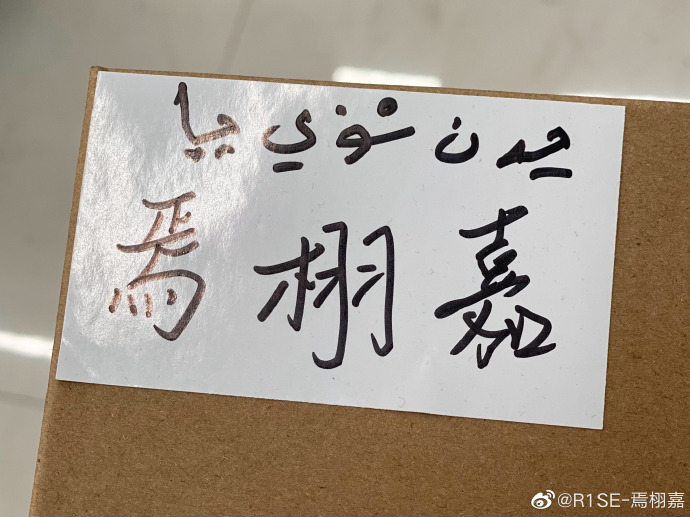 يەن شۈي جيا
焉栩嘉
@R1SE-焉栩嘉